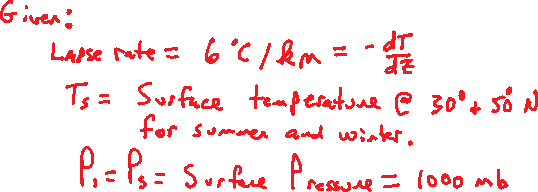 Given:
Lapse rate = 6 °C/km = - dT/dZ
Ts = Surface temperature @ 30° + 50° N
for summer and winter.
P1 = Ps = Surface Pressure = 1000 mb